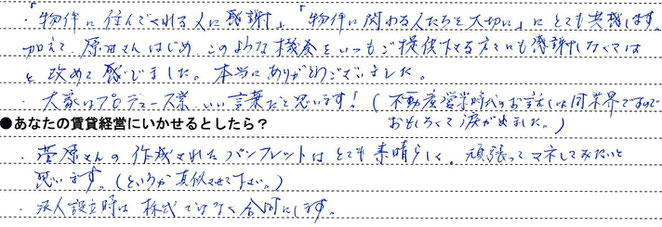 ・「物件に住んでくれる人に感謝」、「物件に関わる人たちを大切に」にとても共感します。
加えて、原田さんはじめ、このような機会をいつもご提供下さる方々にも感謝しなくては
と改めて感じました。本当にありがとうございました。
・大家はプロデュース業、いい言葉だと思います！（不動産営業時代のお話しは同業界ですので
おもしろくて涙がでました。）
●あなたの賃貸経営にいかせるとしたら？
・菅原さんの作成されたパンフレットはとても素晴らしく、頑張ってマネしてみたいと
思います。（というか真似させて下さい。）
・法人設立時は株式ではなく合同にします。